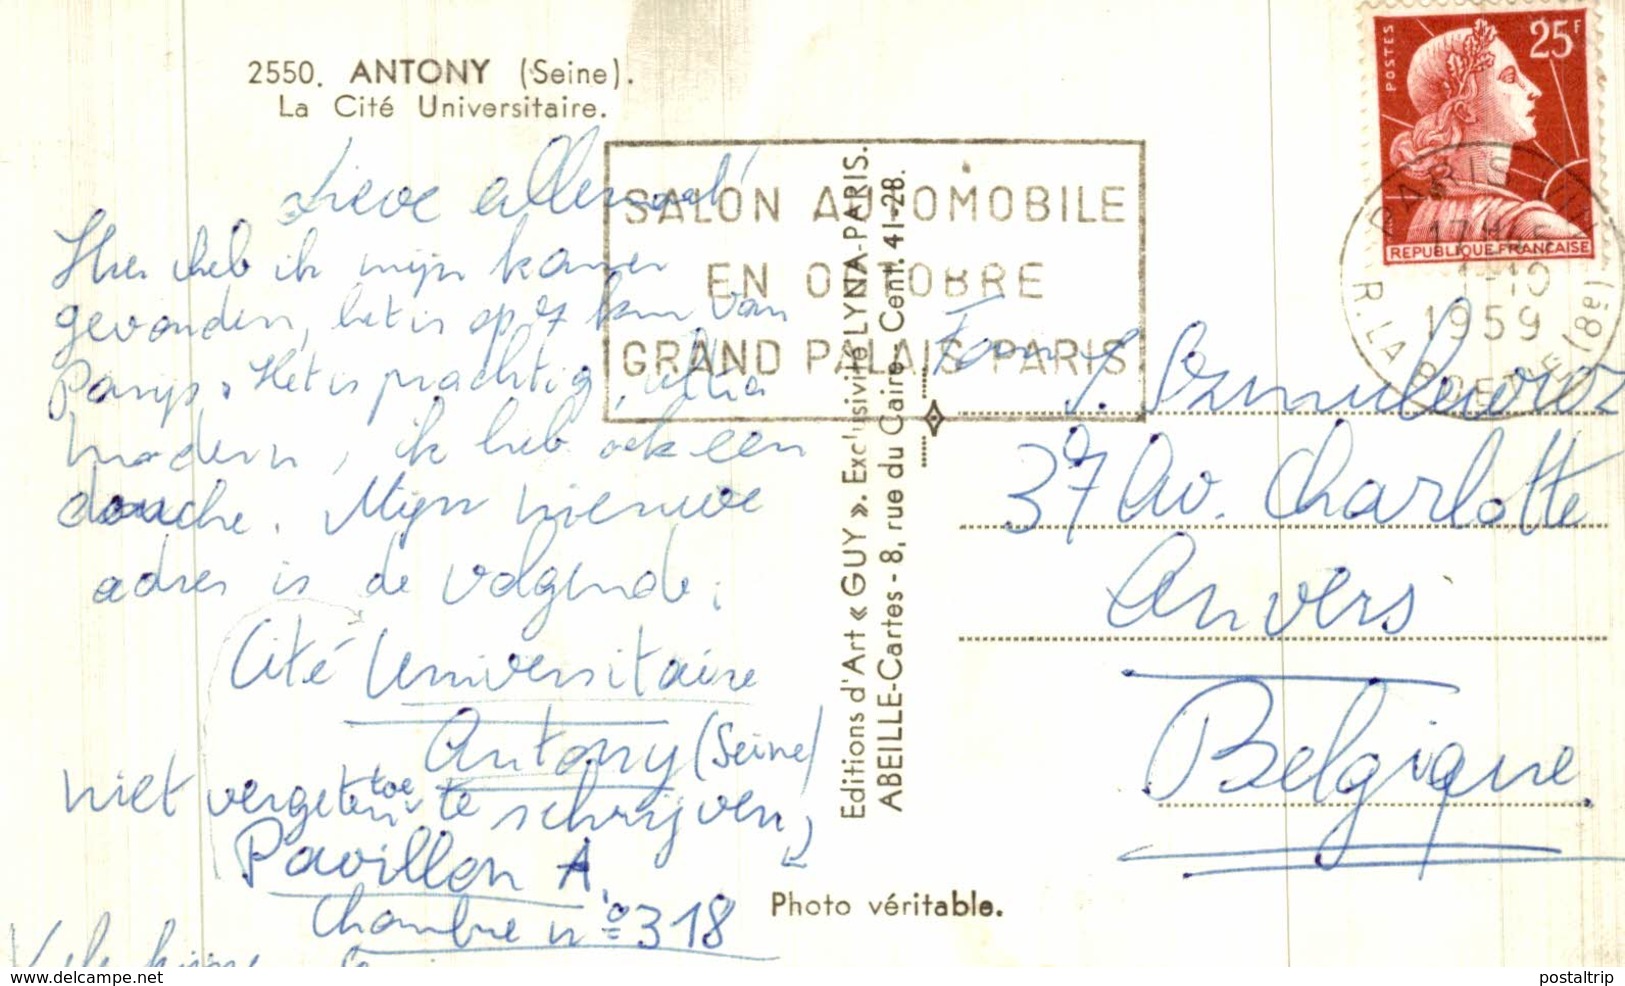 2550. ANTONY (Seine).
La Cité Universitaire.
Lieve allemaal
Hier heb ik mijn kamer
gevonden, het is op 7 km van
Parijs. Het is prachtig, ultra
modern, ik heb ook een
douche. Mijn nieuwe
adres is de volgende:
Cité Universitaire
Antony (Seine)
niet vergeten toe te schrijven
Pavillon A.
Chambre n° 318
SALON AUTOMOBILE
EN OCTOBRE
GRAND PALAIS PARIS
Editions d'Art « GUY ». Exclusivité LYNA-PARIS.
ABEILLE-Cartes - 8, rue du Caire - Cent. 41-28.
Photo véritable.
POSTES
25F
REPUBLIQUE FRANCAISE
PARIS VIII
1-10
1959
R. LA BOETIE (8e)
Fam J. Szmulewicz
37 Av. Charlotte
Anvers
Belgique
www.delcampe.net
postaltrip